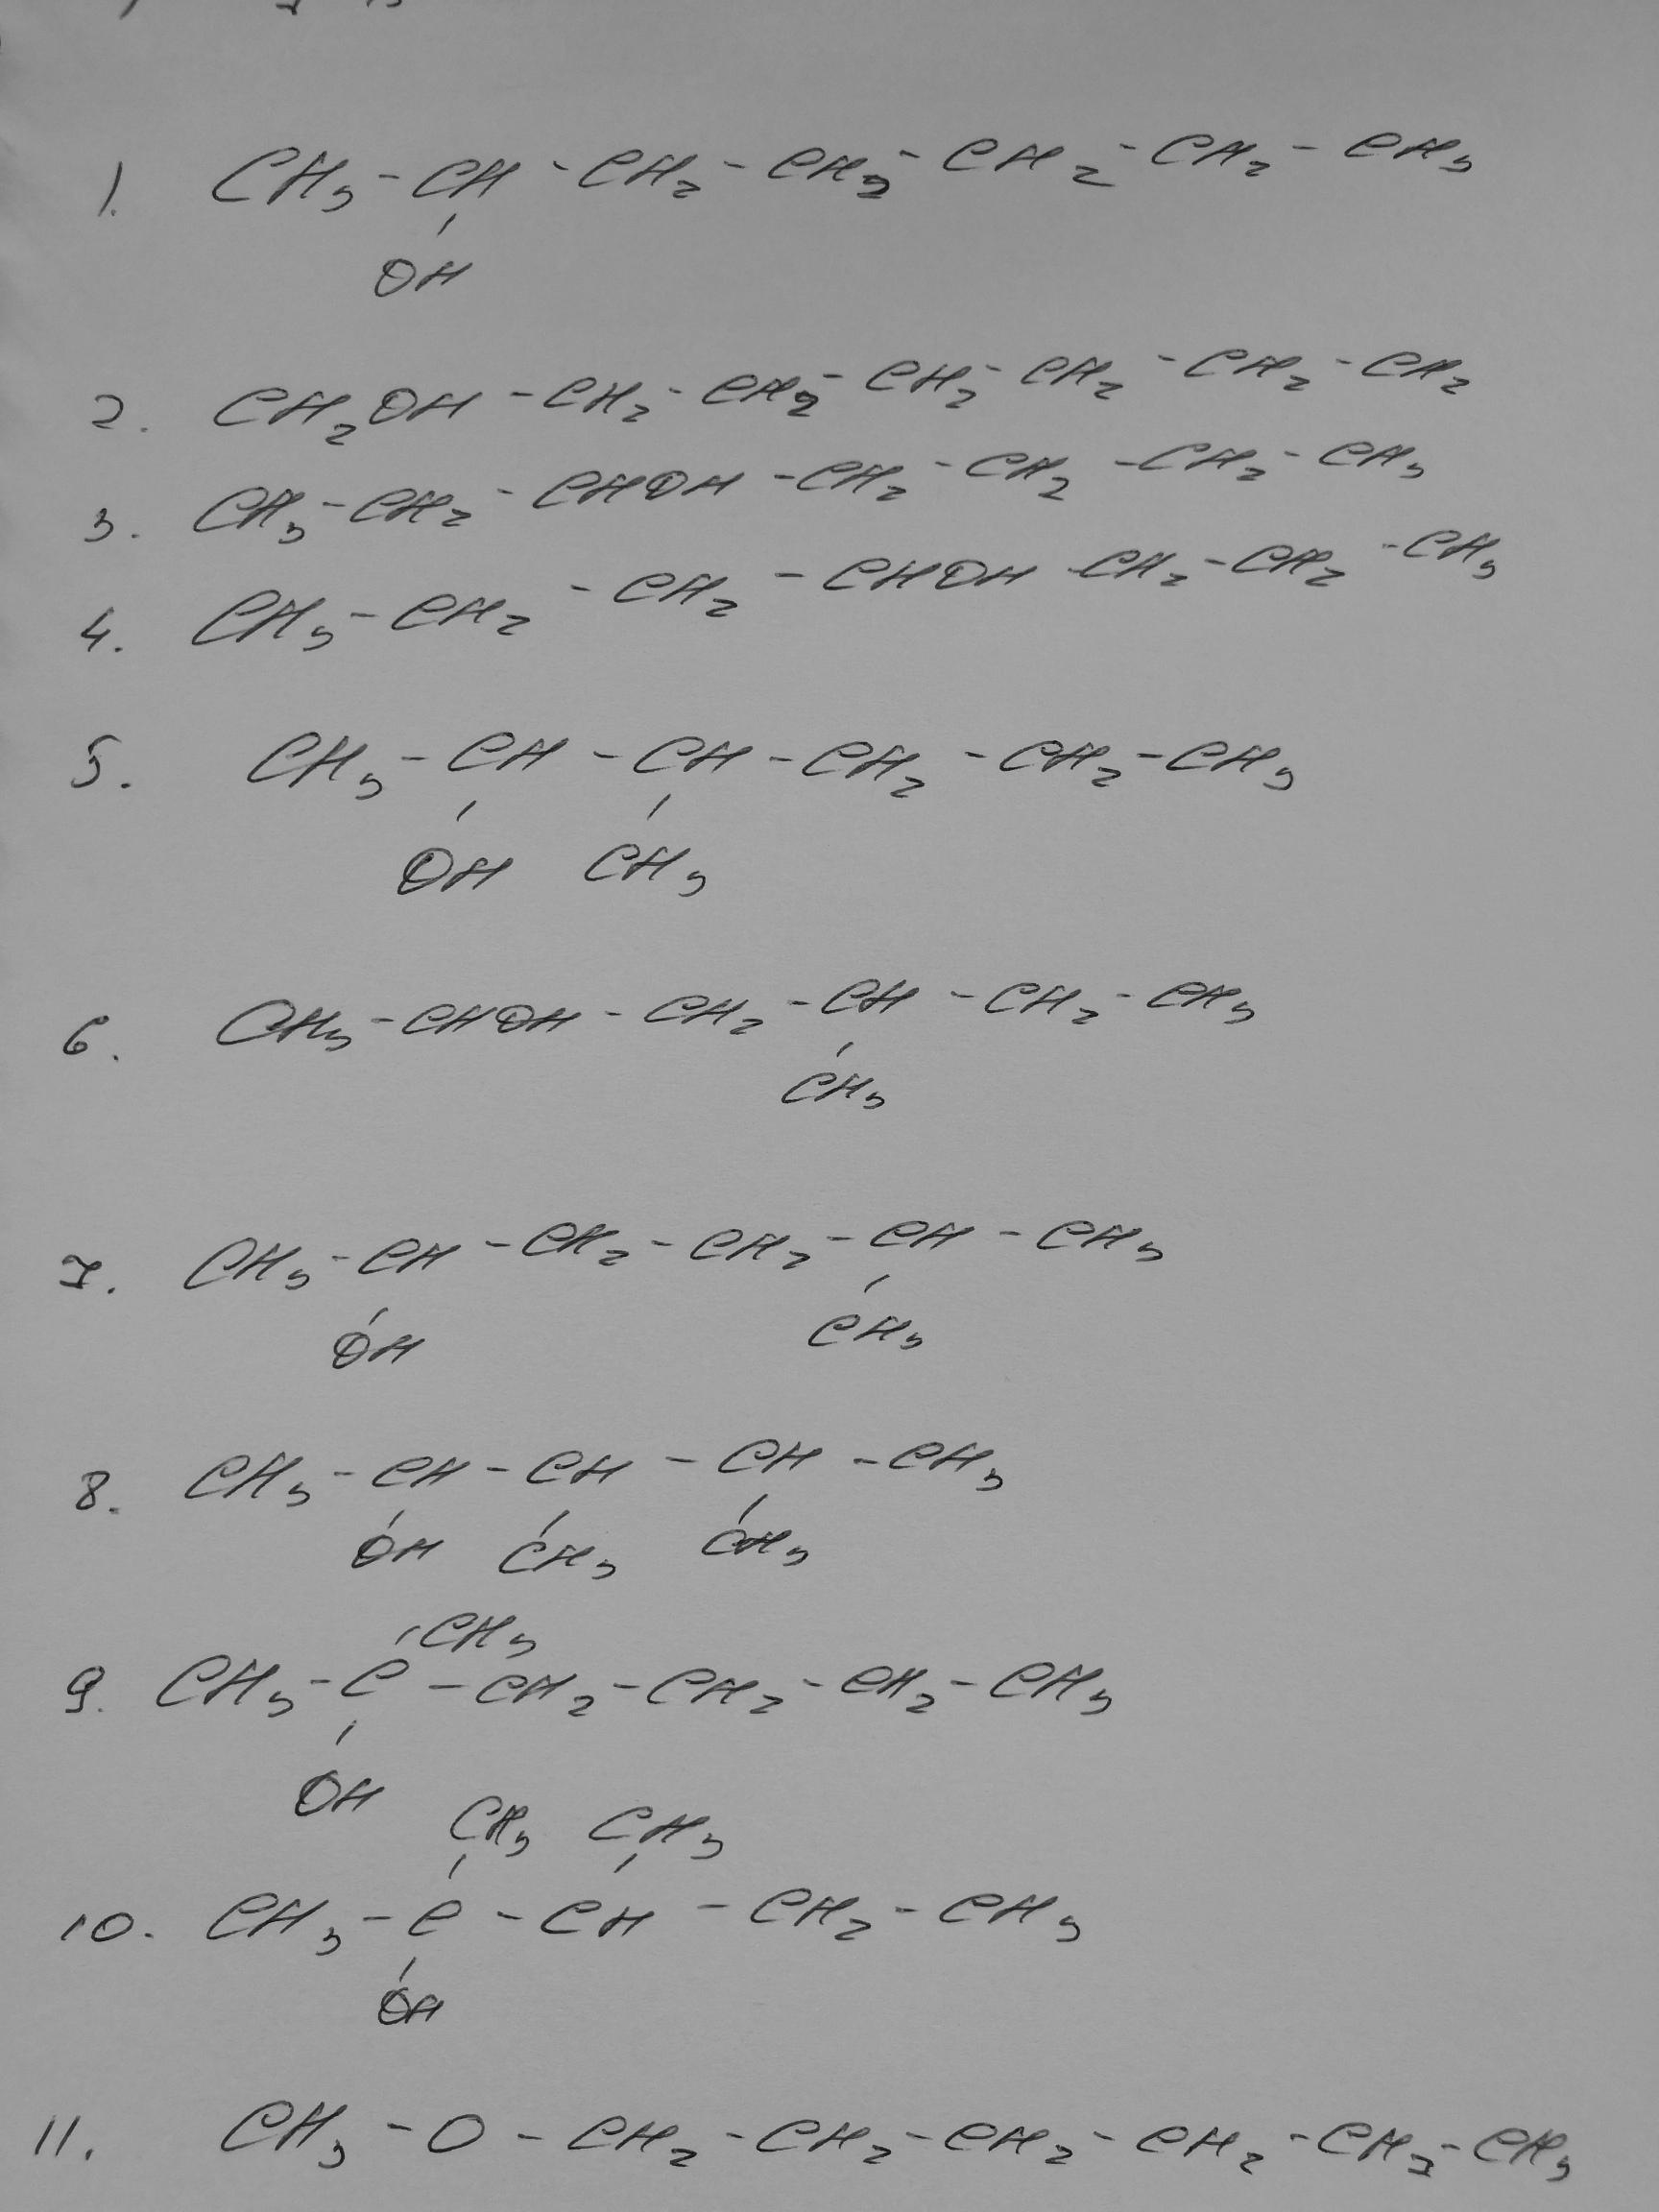 1. CH3 - CH - CH2 - CH2 - CH2 - CH2 - CH3
OH
2. CH2OH - CH2 - CH2 - CH2 - CH2 - CH2 - CH2
3. CH3 - CH2 - CHOH - CH2 - CH2 - CH2 - CH3
4. CH3 - CH2 - CH2 - CHOH - CH2 - CH2 - CH3
5. CH3 - CH - CH - CH2 - CH2 - CH3
OH CH3
6. CH3 - CHOH - CH2 - CH - CH2 - CH3
CH3
7. CH3 - CH - CH2 - CH2 - CH - CH3
OH CH3
8. CH3 - CH - CH - CH - CH3
OH CH3 CH3
CH3
9. CH3 - C - CH2 - CH2 - CH2 - CH3
OH
CH3 CH3
10. CH3 - C - CH - CH2 - CH3
OH
11. CH3 - O - CH2 - CH2 - CH2 - CH2 - CH2 - CH3